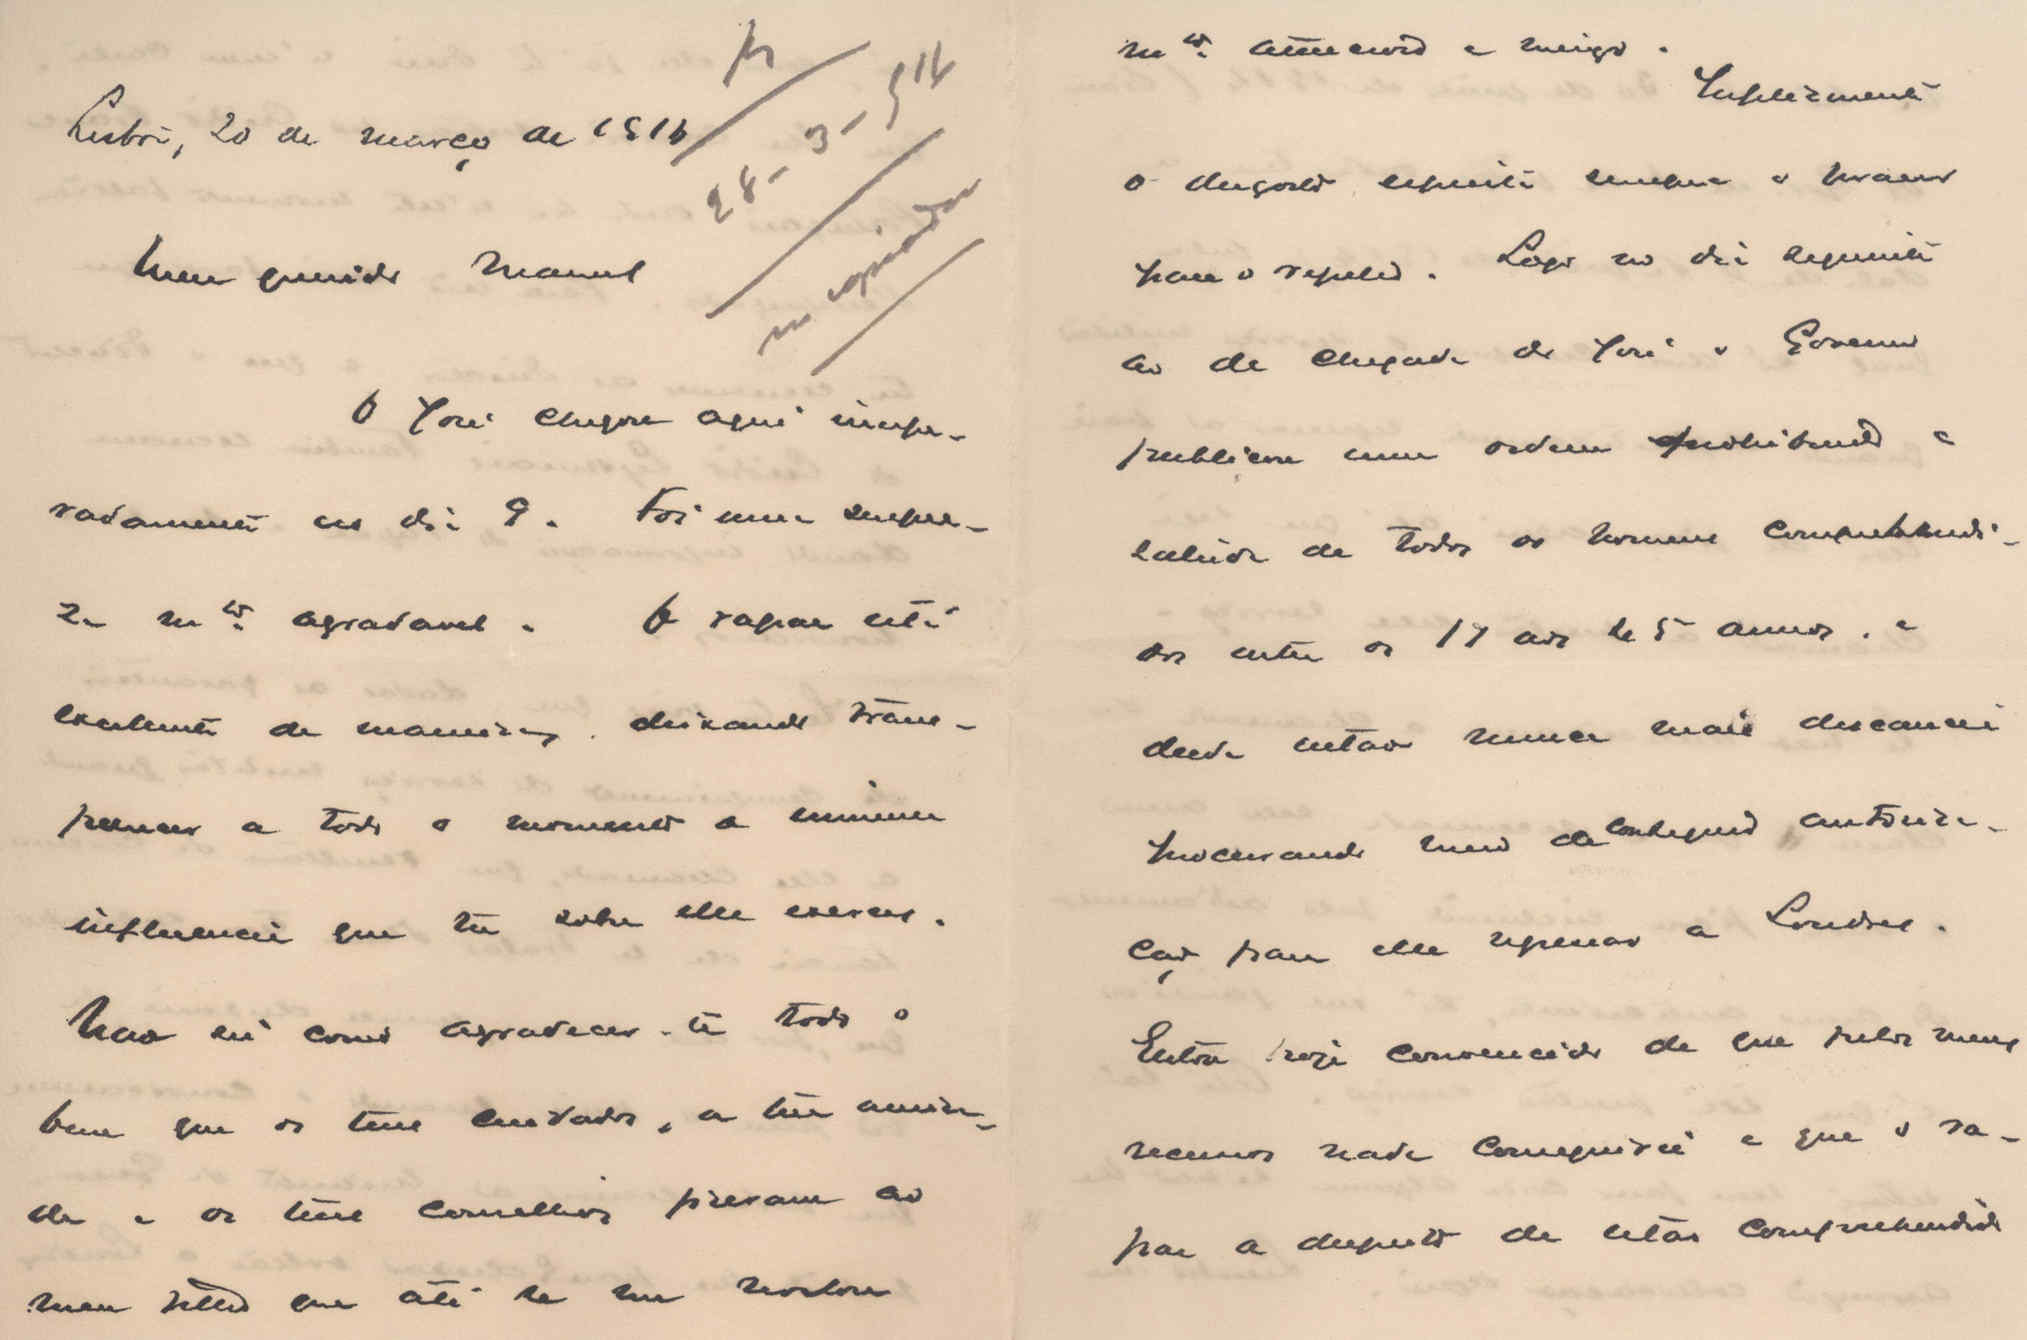 R
28-3-916
no copiador
Lisboa, 20 de março de 1916
Meu querido Manuel
O José chegou aqui inespe-
radamente no dia 9. Foi uma surpre-
za mto. agradavel. O rapaz está
excelente de maneiras, deixando trans-
parecer a todo o momento a immensa
influencia que tu sobre elle exerces.
Nao sei como agradecer-te todo o
bem que os teus cuidados, a tua amiza-
de e os teus conselhos fizeram ao
meu filho que até se me mostrou
mto. attencioso e meigo.
Infelizmente
o desgosto espreita sempre o prazer
para o repelir. Logo no dia seguinte
ao da chegada do José o Governo
publicou uma ordem prohibindo a
sahida de todos os homens comprehendi-
dos entre os 17 aos 45 annos, e
desde então nunca mais descancei
procurando meio de conseguir autoriza-
ção para elle regressar a Londres.
Estou hoje convencido de que pelos meus
recursos nada conseguirei e que o ra-
paz a despeito de estar comprehendido